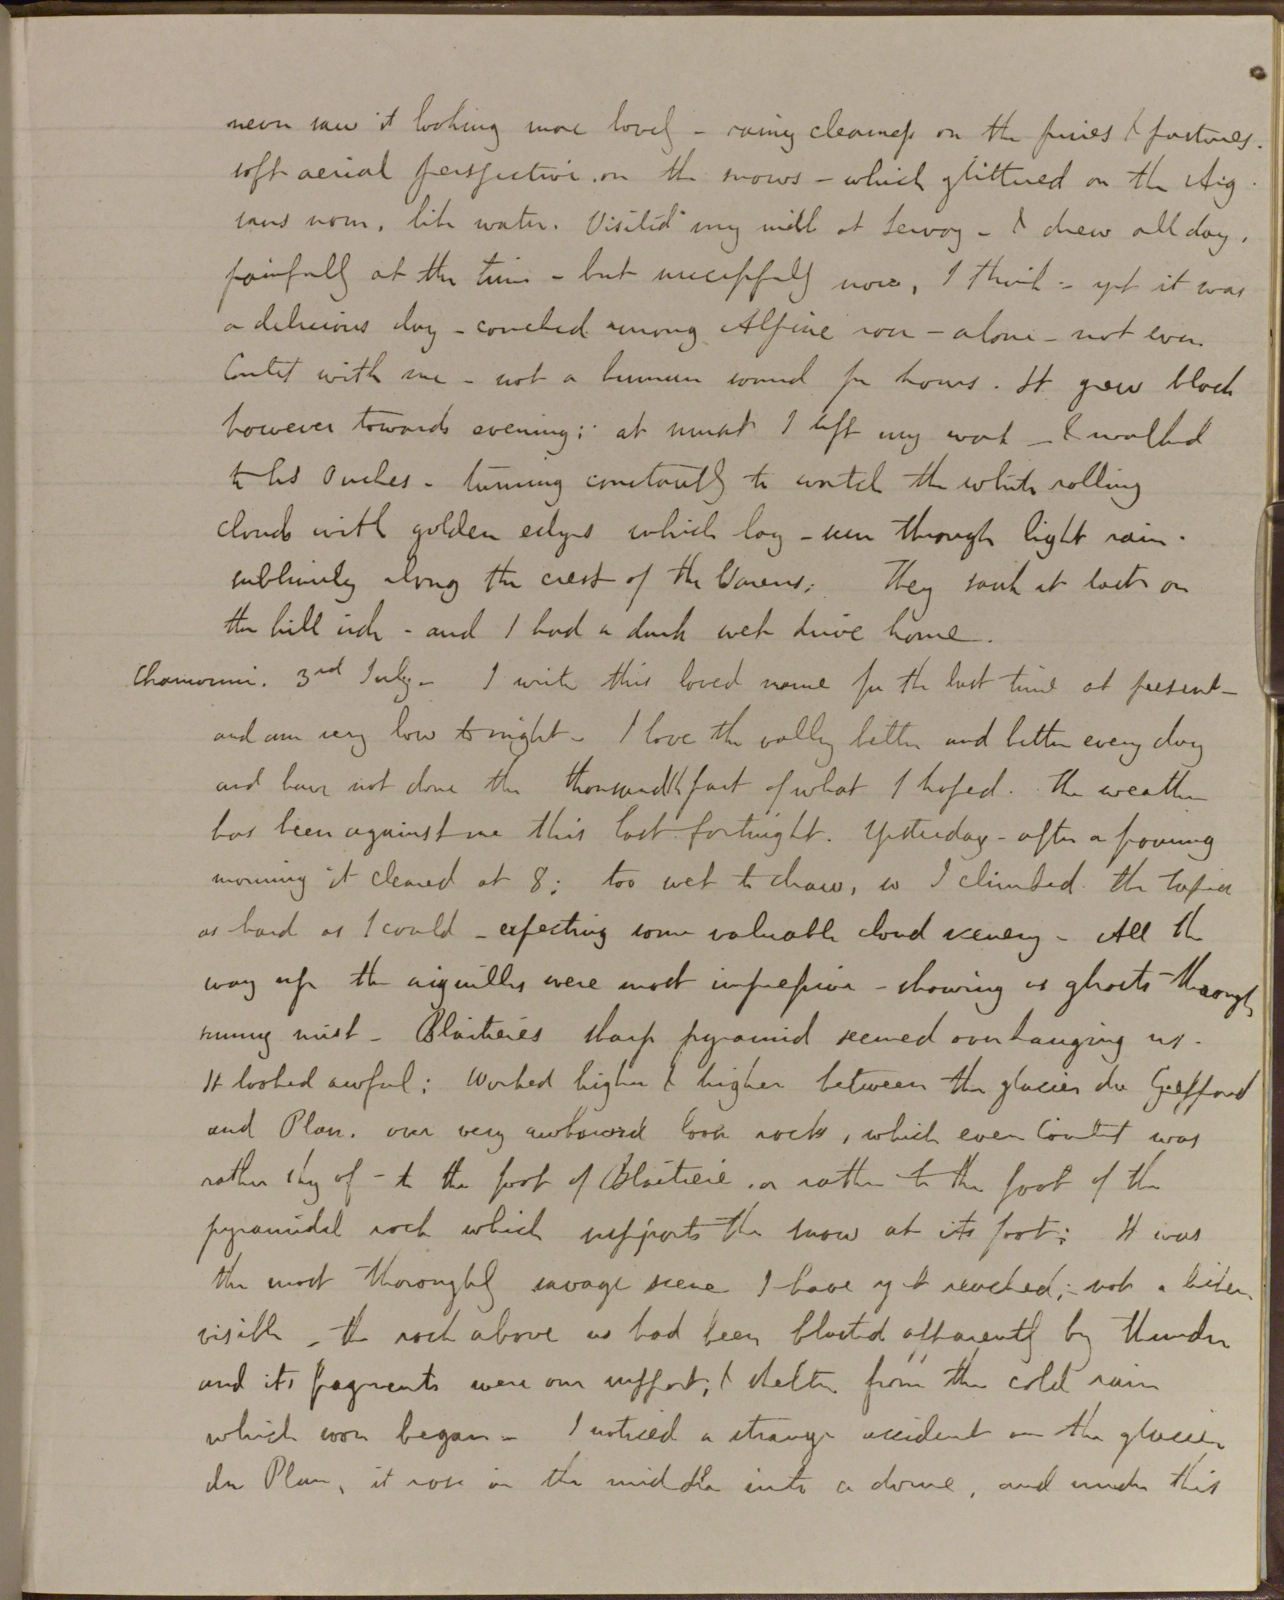 never saw it looking more lovely - rainy clearness on the pines & pastures.
soft aerial perspective on the snows - which glittered on the Aig.
sans nom, like water. Visited my mill at Servoz - & drew all day,
painfully at the time - but successfully now, I think - yet it was
a delicious day - couched among Alpine rose - alone - not even
Coutet with me - not a human sound for hours. It grew black
however towards evening; at sunset I left my work - & walked
to Les Ouches - turning constantly to watch the white rolling
clouds with golden edges which lay - seen through light rain -
sublimely along the crest of the Varens; They sank at last on
the hill side - and I had a dark wet drive home.
Chamouni. 3rd July - I write this loved name for the last time at present -
and am very low to night - I love the valley better and better every day
and have not done the thousandth part of what I hoped. The weather
has been against me this last fortnight. Yesterday - after a pouring
morning it cleared at 8; too wet to draw, so I climbed the Tapia
as hard as I could - expecting some valuable cloud scenery - All the
way up the aiguilles were most impressive - showing as ghosts through
sunny mist - Blaitieres sharp pyramid seemed overhanging us.
It looked awful; Worked higher & higher between the glacier du Greppond
and Plan. over very awkward loose rocks, which even Coutet was
rather shy of - to the foot of Blaitiere, or rather to the foot of the
pyramidal rock which supports the snow at its foot; It was
the most thoroughly savage scene I have yet reached; - not a lichen
visible - the rock above us had been blasted apparently by thunder
and its fragments were our support, & shelter from the cold rain
which soon began - I noticed a strange accident on the glacier
du Plan, it rose in the middle into a dome, and under this